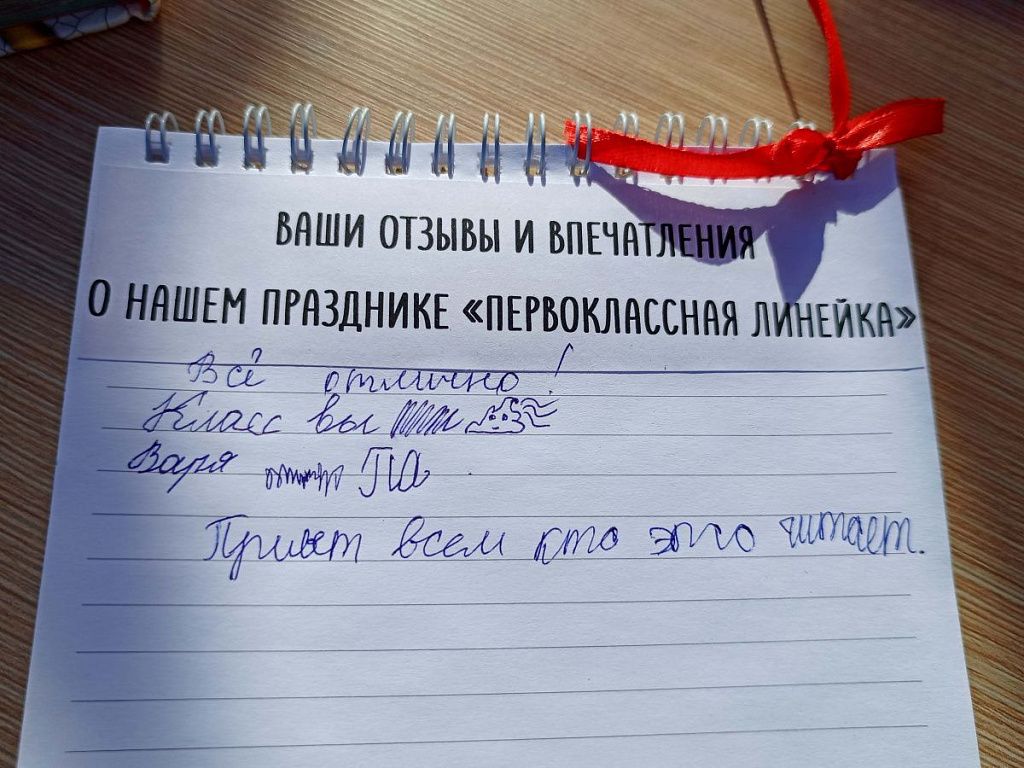 ВАШИ ОТЗЫВЫ И ВПЕЧАТЛЕНИЯ
О НАШЕМ ПРАЗДНИКЕ «ПЕРВОКЛАССНАЯ ЛИНЕЙКА»
Всё отлично!
Класс вы
Варя ПА
Привет всем кто это читает.